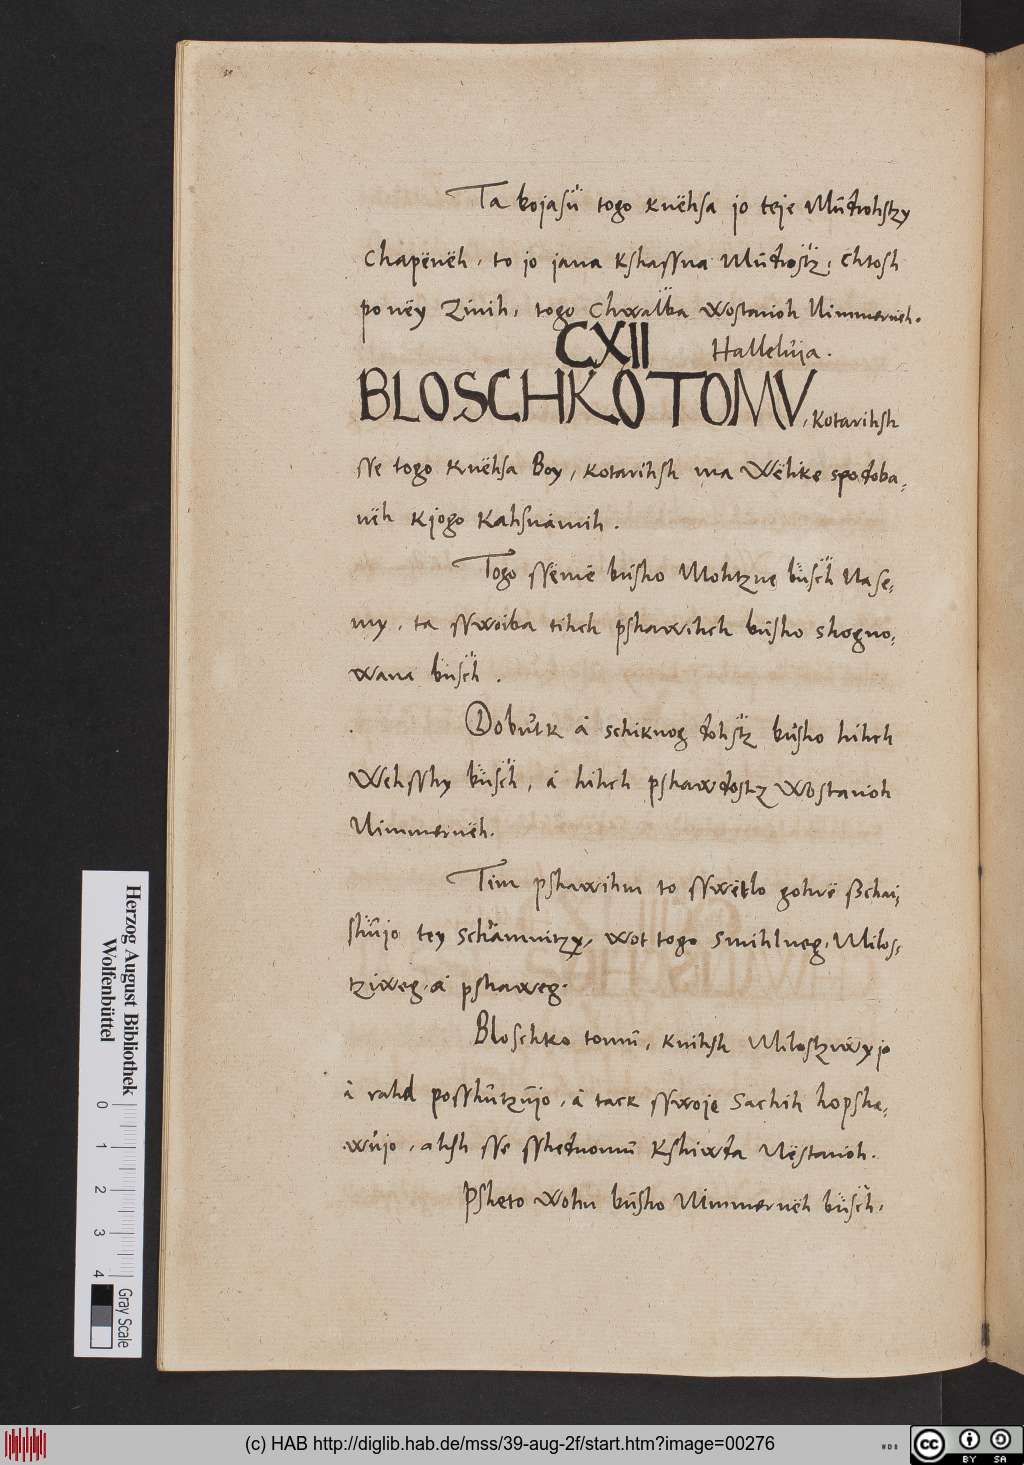 Ta bojasü togo knëhsa jo teje Mudrohstzy
Chapënëh, to jo jana kshassna Mudrostz, chtosh
po nëy Zinih, togo Chwalba wostanioh Nimmernëh.
CXII Halleluja.
BLOSCHKO TOMV, kotarihsh
sse togo knëhsa Boy, kotarihsh ma Wëlike spodoba-
nëh kjogo kahsnamih.
Togo ssëmë busho Mohtzne büsch Na se-
my, ta sswoiba tihch pshawihch busho shogno-
wana büsch.
Dobutk a schiknog dohstz busho hihch
Wehsshy büsch, a hihch pshawdostz wostanioh
Nimmernëh.
Tim pshawihm to sswëtlo gohrë ßchai-
shujo tey schamnitzy, wot togo Smihlneg, Milos-
tziweg, a pshaweg.
Bloschko tomu, knihsh Milostziwy jo
a rahd posshutzujo, a tack sswoje Sachih hopsha-
wujo, ahsh sse sshednomu kshiwda Nëstanioh.
Psheto wohn busho Nimmernëh büsch,
Herzog August Bibliothek
Wolfenbüttel
0 1 2 3 4
Gray Scale
(c) HAB http://diglib.hab.de/mss/39-aug-2f/start.htm?image=00276
WDB
CC BY SA